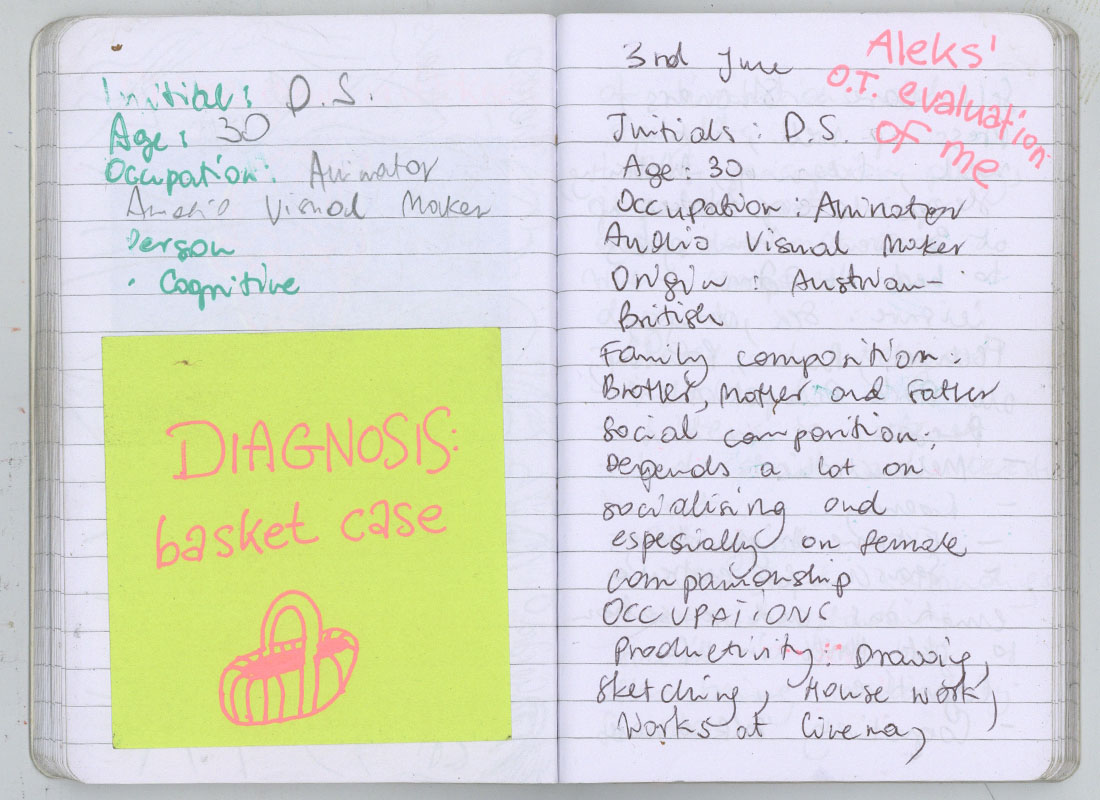 Initial: D.S.
Age: 30
Occupation: Animator
Audio Visual Maker
Person
· Cognitive
DIAGNOSIS:
basket case
3rd June
Aleks'
O.T. evaluation
of me
Initials: D.S.
Age: 30
Occupation: Animator
Audio Visual Maker
Origin: Austrian-
British
Family composition.
Brother, Mother and Father
Social composition:
Depends a lot on
socialising and
espesially on female
companionship
OCCUPATIONS
Productivity: Drawing,
sketching, House work,
Works at Cinema,